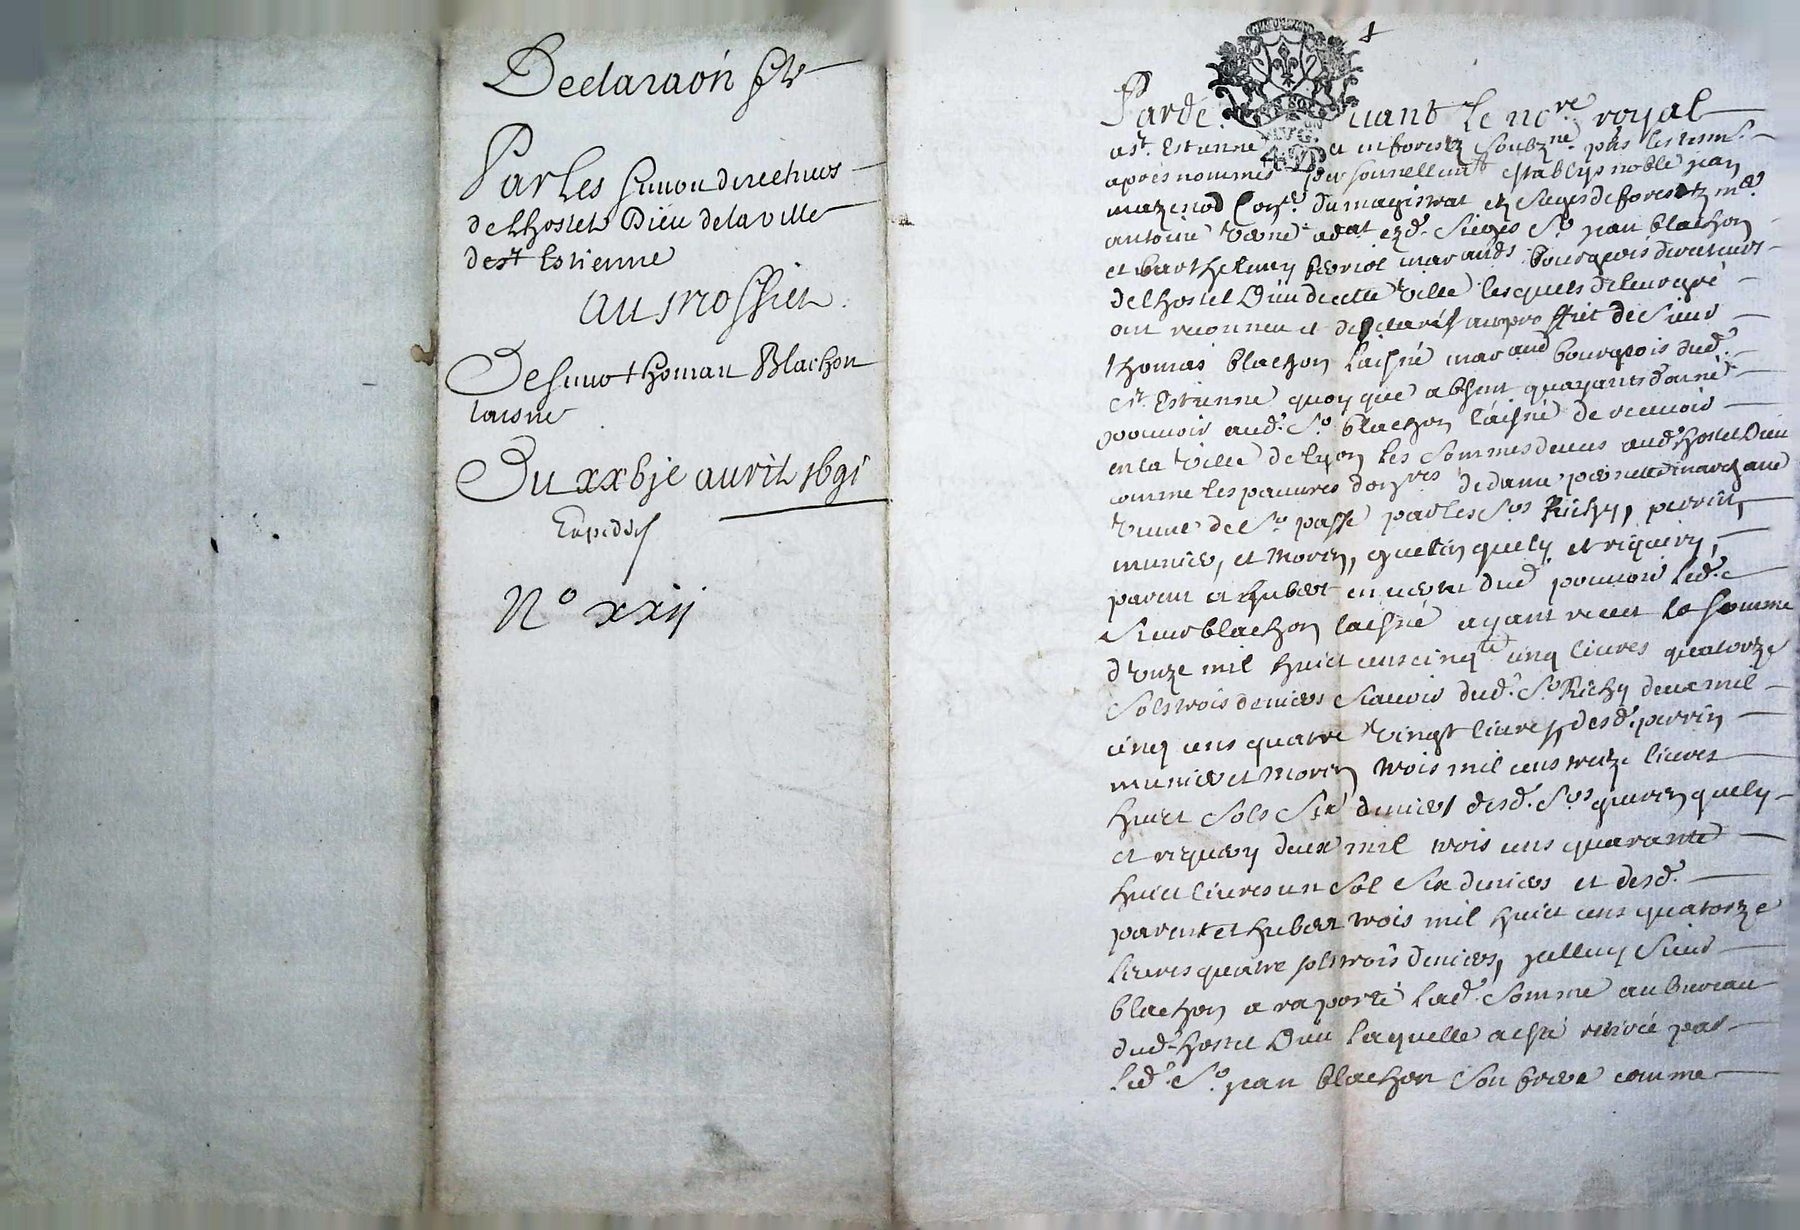 Declaraon
Par Les sieurs directeurs
de Lhostel Dieu de la ville
de st Estienne
au proffict
De sieur thomas Blachon
laisne
Du xxbje avril 1691
Expedié
No xxij
Pardevant Le nore royal
a st. Estienne en forestz soubzne. pns les tesm.
apres nommes personnellemt establys noble jean
mazenod Coner. du magistrat et sieges de forestz me.
antoine adat esd. Sieges Sr. jean blachon
et barthelemy marands. bourgeois directeurs
de Lhostel Dieu de cette ville lesquels de leur gré
ont reconneu et declaré au proffict de Sieur
thomas blachon laisné marand bourgeois dud.
st. Estienne quoy que absent quayants donné
pouvoir aud. Sr. blachon laisné de recevoir
en la ville de lyon les sommes deues aud. hostel Dieu
comme les pauvres de dame
veuve de Sr. par les Srs Richy, perrin,
munier, et morin, quely et riquery,
parent et hubert en dud. pouvoir led.
Sieur blachon laisné ayant receu la somme
d'onze mil huict cens cinqte cinq livres quatorze
sols trois deniers scavoir dud. Sr. Richy deux mil
cinq cens quatre vingt livres, desd. perrin
munier et morin trois mil cens treize livres
huict sols six deniers desd. Srs quely
et riquery deux mil trois cens quarante
huict livres un sol six deniers et desd.
parent et hubert trois mil huict cens quatorze
livres quatre sols trois deniers, jcelluy Sieur
blachon a raporté lad. somme au bureau
dud. hostel Dieu laquelle a esté retirée par
led. Sr. jean blachon son frere comme